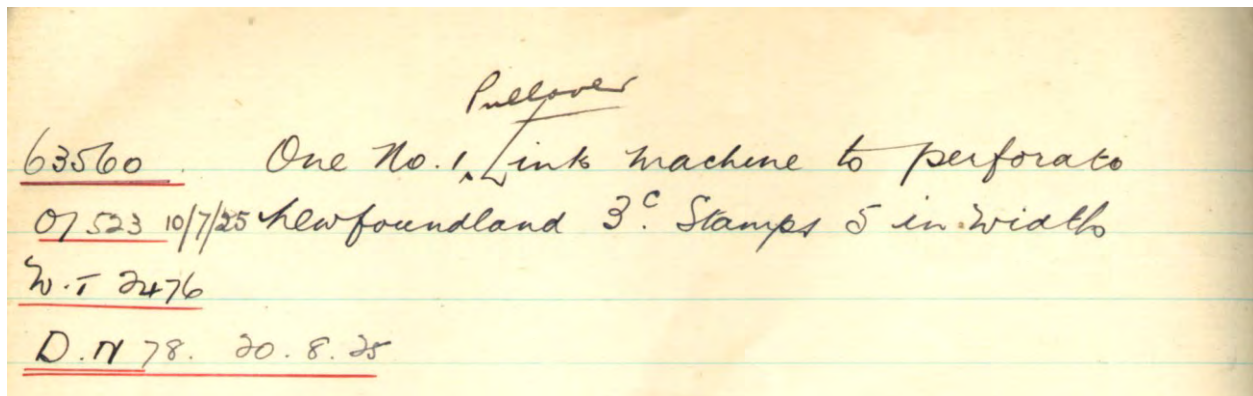 Pullover
63560. One No. 1 Link machine to perforate
O/523 10/7/25 Newfoundland 3c. Stamps 5 in width
W.T 2476
D.N 78. 20.8.25